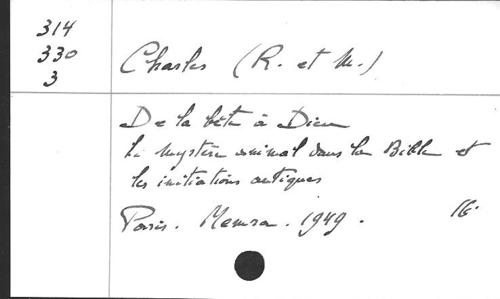 314
330
3
Charles (R. et M.)
De la bête à Dieu
Le mystère animal dans la Bible et
les initiations antiques
Paris. Memra. 1949. 16°